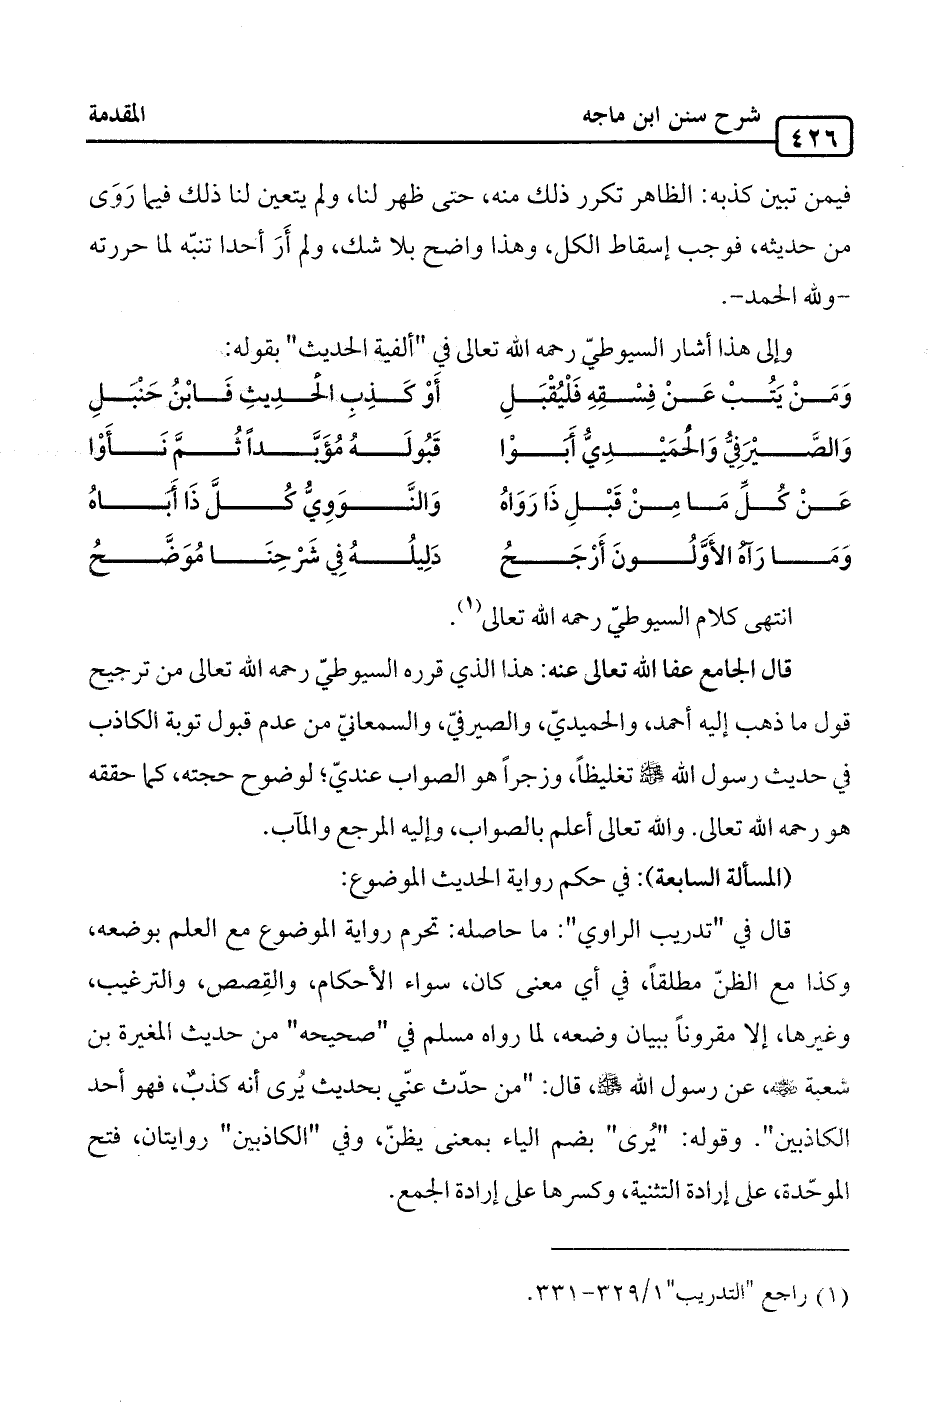 شرح سنن ابن ماجه المقدمة
٤٢٦
فيمن تبين كذبه: الظاهر تكرر ذلك منه، حتى ظهر لنا، ولم يتعين لنا ذلك فيما رَوَى
من حديثه، فوجب إسقاط الكل، وهذا واضح بلا شك، ولم أَرَ أحدا تنبّه لما حررته
-ولله الحمد-.
وإلى هذا أشار السيوطيّ رحمه الله تعالى في "ألفية الحديث" بقوله:
وَمَنْ يَتُبْ عَنْ فِسْقِهِ فَلْيُقْبَلِ أَوْ كَذِبِ الْحَدِيثِ فَابْنُ حَنْبَلِ
وَالصَّيْرَفِيُّ وَالْحُمَيْدِيُّ أَبَوْا قَبُولَهُ مُؤَبَّداً ثُمَّ نَأَوْا
عَنْ كُلِّ مَا مِنْ قَبْلِ ذَا رَوَاهُ وَالنَّوَوِيُّ كُلَّ ذَا أَبَاهُ
وَمَا رَآهُ الأَوَّلُونَ أَرْجَحُ دَلِيلُهُ فِي شَرْحِنَا مُوَضَّحُ
انتهى كلام السيوطيّ رحمه الله تعالى(١).
قال الجامع عفا الله تعالى عنه: هذا الذي قرره السيوطيّ رحمه الله تعالى من ترجيح
قول ما ذهب إليه أحمد، والحميديّ، والصيرفيّ، والسمعانيّ من عدم قبول توبة الكاذب
في حديث رسول الله ﷺ تغليظاً، وزجراً هو الصواب عنديّ؛ لوضوح حجته، كما حققه
هو رحمه الله تعالى. والله تعالى أعلم بالصواب، وإليه المرجع والمآب.
(المسألة السابعة): في حكم رواية الحديث الموضوع:
قال في "تدريب الراوي": ما حاصله: تحرم رواية الموضوع مع العلم بوضعه،
وكذا مع الظنّ مطلقاً، في أي معنى كان، سواء الأحكام، والقِصص، والترغيب،
وغيرها، إلا مقروناً ببيان وضعه، لما رواه مسلم في "صحيحه" من حديث المغيرة بن
شعبة ﵁، عن رسول الله ﷺ، قال: "من حدّث عنّي بحديث يُرى أنه كذبٌ، فهو أحد
الكاذبين". وقوله: "يُرى" بضم الياء بمعنى يظنّ، وفي "الكاذبين" روايتان، فتح
الموحّدة، على إرادة التثنية، وكسرها على إرادة الجمع.
(١) راجع "التدريب" ١/ ٣٢٩-٣٣١.